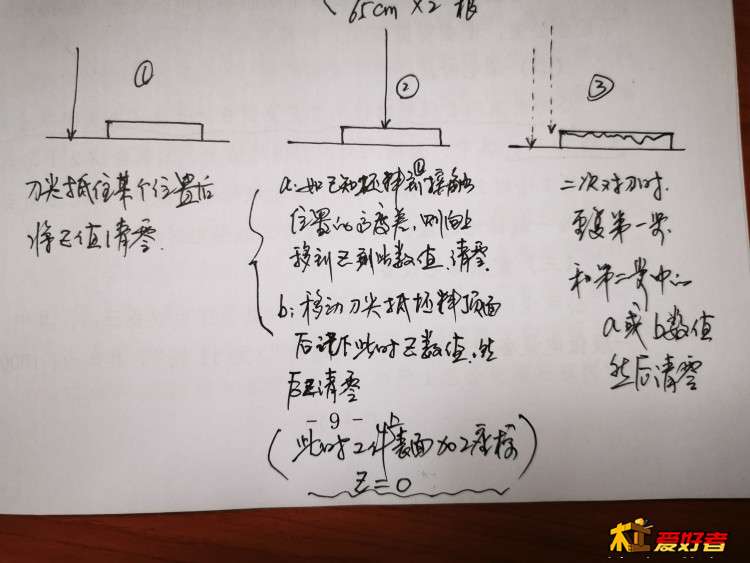 65cm × 2 根
①
②
③
刀尖抵住某个位置后
将Z值清零.
a. 如已知坯料和①接触
位置的高度差, 则向上
移到Z到此数值. 清零
b: 移动刀尖抵坯料顶面
后记下此时Z数值. 然
后Z清零
- 9 -
(此时工件表面加工座标)
Z = 0
二次对刀时.
重复第一步.
和第二步中
a或b数值
然后清零
木工爱好者